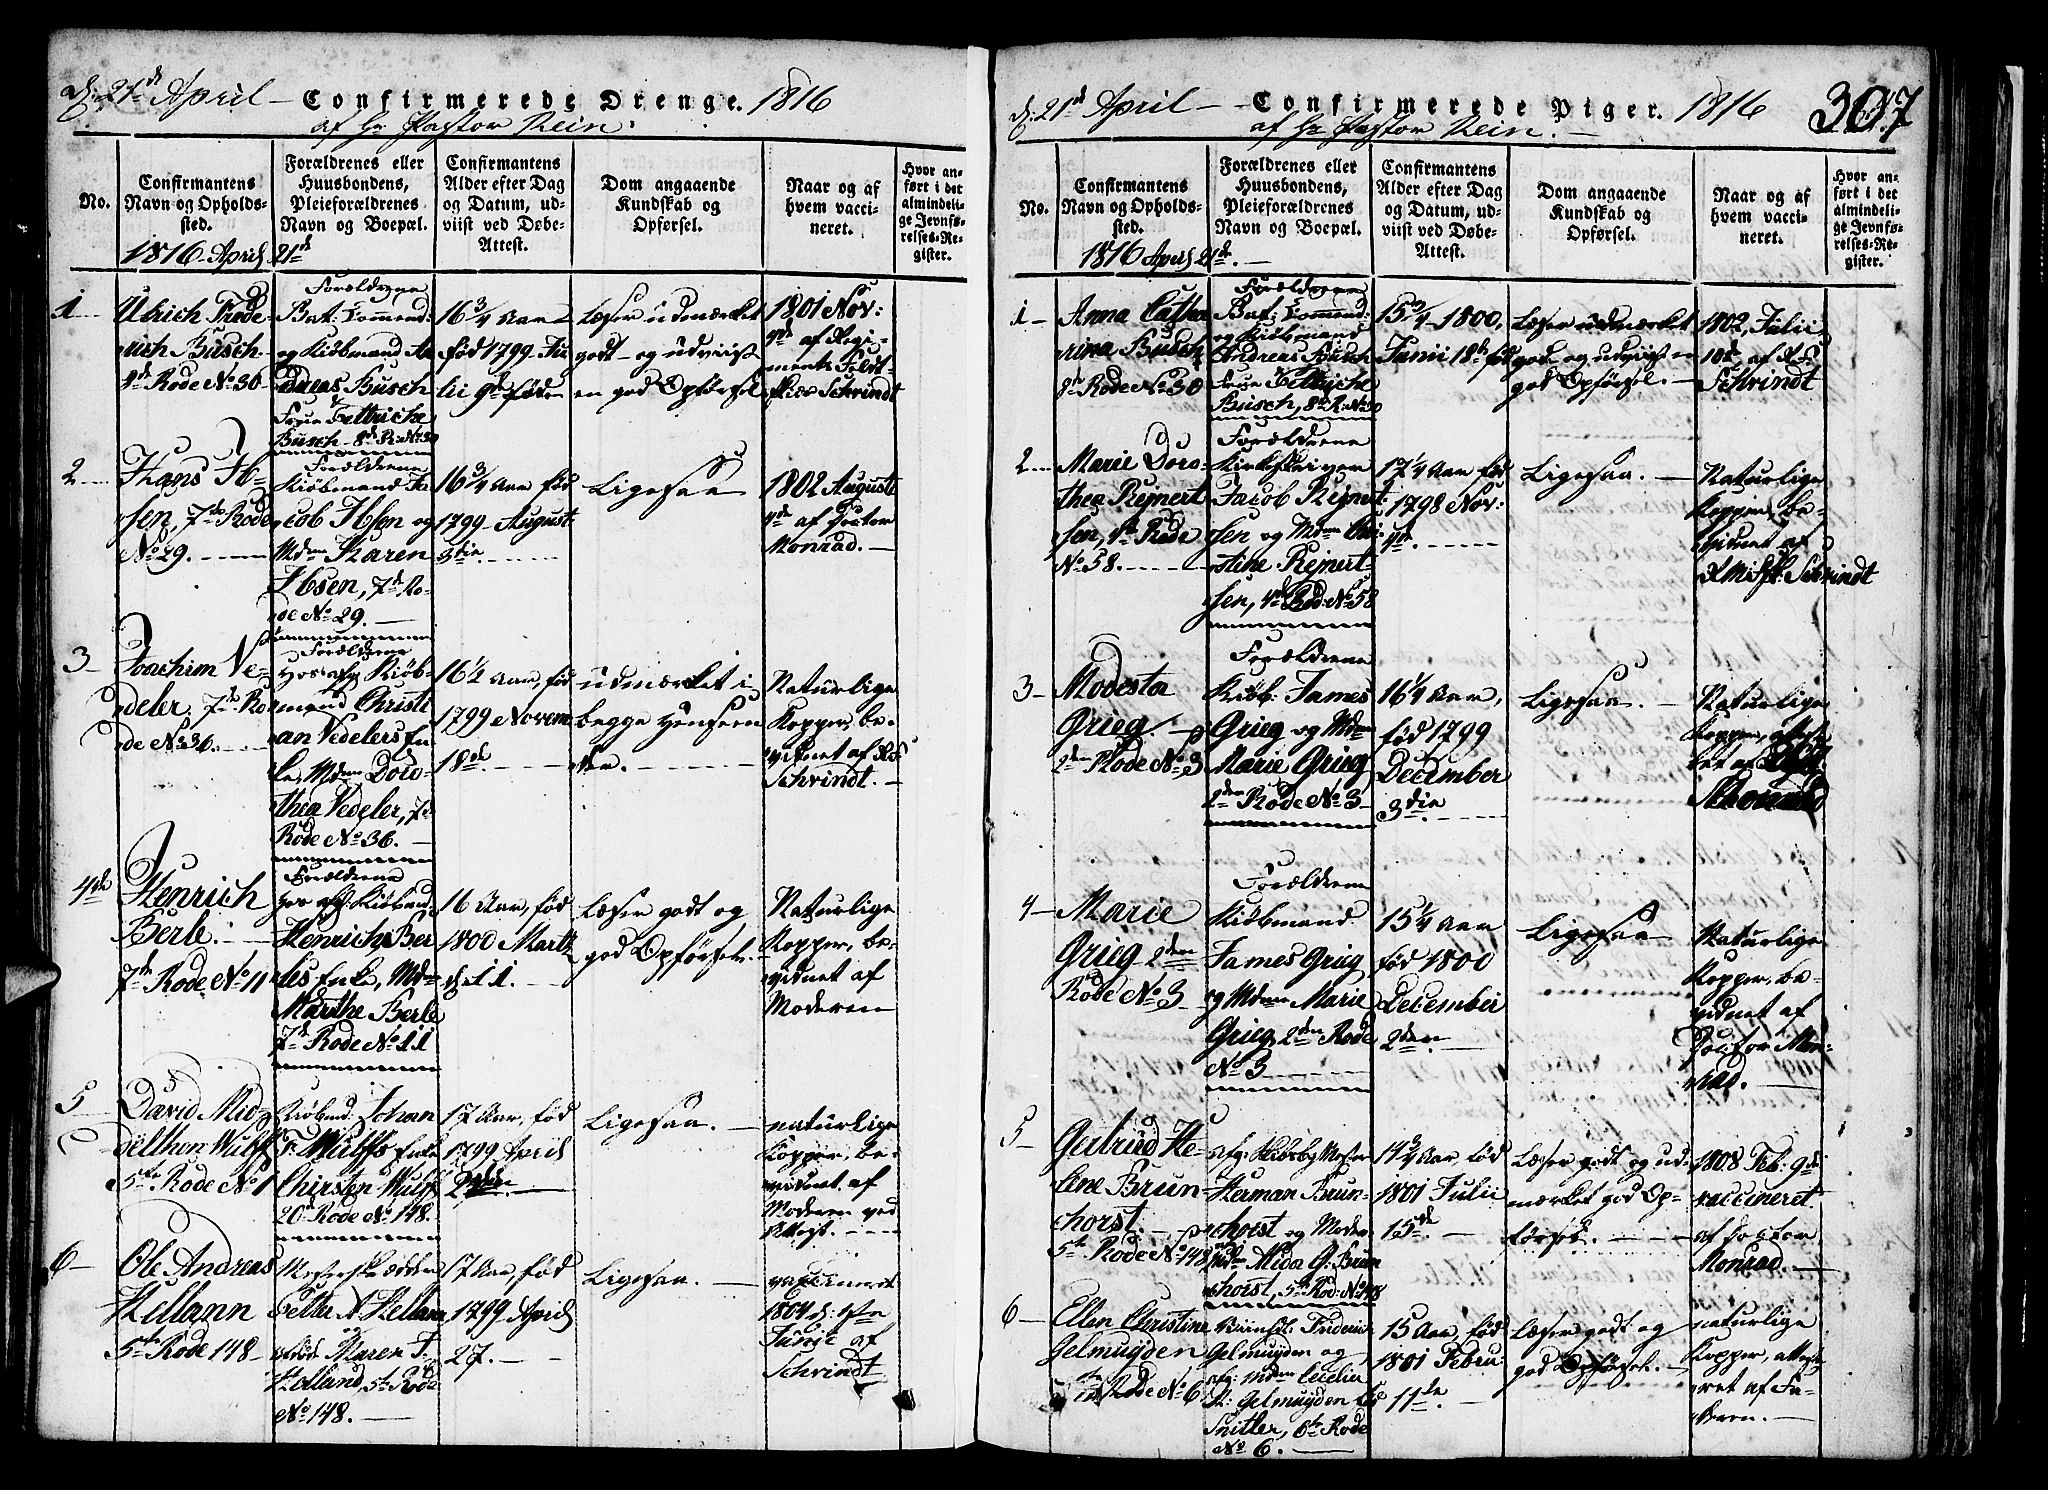 d: 21de April — Confirmerede Drenge. 1816
af Hr Pastor Rein.
No.
Confirmantens Navn og Opholdssted.
Forældrenes eller Huusbondens, Pleieforældrenes Navn og Boepæl.
Confirmantens Alder efter Dag og Datum, udviist ved Døbe-Attest.
Dom angaaende Kundskab og Opførsel.
Naar og af hvem vaccineret.
Hvor anført i det almindelige Jevnførelses-Register.
1816 April 21de
1
Ulrich Frederich Busch.
8de Rode No 30
Forældrene
Bat: Commend:
og Kiøbmand Andreas Busch
Frue
Busch 8de R: No 30
16 3/4 Aar
født 1799 Julii 9de
Læser udmærket
godt og udviist
en god Opførsel
1801 Nov:
af Regimentsfeldtskier Schvindt
2
Hans Ibsen, 7de Rode
No 29.
Forældrene
Kiøbmand Jacob Ibsen og
Mdme Karen
Ibsen, 7de Rode No 29.
16 3/4 Aar, fød
1799 August
3die
Ligesaa
1802 Augusti
4de af Doctor
Monrad.
3
Joachim Vedeler, 7de Rode No 36.
Forældrene
Kiøbmand Christian Vedelers Enke, Mdme Dorothea Vedeler, 7de
Rode No 36.
16 1/2 Aar, fød
1799 Novem
18de
udmærket i
begge Henseender.
Naturlige
Kopper, bevidnet af
Schvindt.
4de
Henrich
Berle.
7de Rode No 11
Forældrene
Henrich Berles Enke, Mdme
Marthe Berle
7de Rode No 11
16 Aar, fød
1800 Martz
d: 11.
Læser godt og
god Opførsel.
Naturlige
Kopper, bevidnet af
Moderen
5
David Middelthon Wulff
5te Rode No 1
Kiøbmd: Johan
F: Wulffs Enke
Chirsten Wulff
20de Rode No 148.
17 Aar, fød
1799 April
2den
Ligesaa.
naturlige
Kopper, bevidnet af
Moderen ved
Attest.
6
Ole Andreas
Hellann
5te Rode 148
Mesterskrædder
Petter A Hellann
Maren F.
Helland, 5te Rode
No 148.
17 Aar, fød
1799 April
27.
Ligesaa.
vaccineret
1804 d: 1ste
Junie af
Schvindt
d: 21de April — Confirmerede Piger. 1816
307
af Hr Pastor Rein.
No.
Confirmantens Navn og Opholdssted.
Forældrenes eller Huusbondens, Pleieforældrenes Navn og Boepæl.
Confirmantens Alder efter Dag og Datum, udviist ved Døbe-Attest.
Dom angaaende Kundskab og Opførsel.
Naar og af hvem vaccineret.
Hvor anført i det almindelige Jevnførelses-Register.
1816 April 21de.
1
Anna Catharina Busch
8de Rode No 30
Forældrene
Bat: Commend:
og Kiøbmand
Andreas Busch
Frue
Busch, 8de R: No 30
15 3/4 1800,
Junii 18de fød
Læser udmærket
godt og udviist en
god Opførsel.
1802, Julii
10de af
Schvindt
2
Marie Dorothea Rejnertsen, 4de Rode
No 58.
Forældrene
Kirkeskriver
Jacob Rejnertsen og Mdme Christine Rejnertsen, 4de Rode No 58
17 1/4 Aar fød
1798 Nov:
4de.
Ligesaa.
Naturlige
Kopper, bevidnet af
Schvindt
3
Modesta
Grieg.
2den Rode No 3
Forældrene
Kiøb: James
Grieg og Mdme
Marie Grieg
2den Rode No 3
16 1/4 Aar,
fød 1799
December
3die.
Ligesaa.
Naturlige
Kopper,
Monrad
4
Marie
Grieg 2den
Rode No 3
Forældrene
Kiøbmand
James Grieg
og Mdme Marie
Grieg, 2den Rode
No 3
15 1/4 Aar
fød 1800
December
2den.
Ligesaa
Naturlige
Kopper, bevidnet af
Doctor Monrad.
5
Gertrud Helene Brunchorst.
5te Rode No 148
Herman Brunchorst og Moder
Mdme Alida G: Brunchorst, 5te Rod: No 148
14 3/4 Aar, fød
1801 Julii
15de
Læser godt og udmærket god Opførsel.
1808 Feb: 9de
vaccineret
af Doctor
Monrad
6
Ellen Christine
Gelmuyden
Rode No 6
Friderich
Gelmuyden og
Mdme Cecilia
Gelmuyden
6te Rode
No 6.
15 Aar, fød
1801 Febru:
11te.
Læser godt og
god Opførsel.
naturlige
Kopper, attesteret af Faderen.